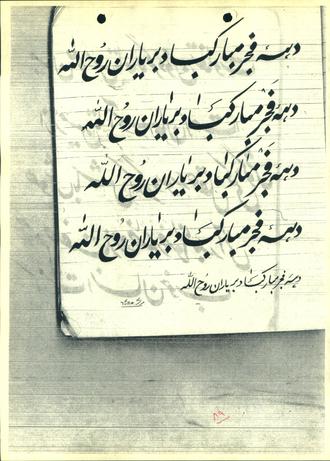 دههٔ فجر مبارکباد بر یاران روح الله
دههٔ فجر مبارکباد بر یاران روح الله
دههٔ فجر مبارکباد بر یاران روح الله
دههٔ فجر مبارکباد بر یاران روح الله
دههٔ فجر مبارکباد بر یاران روح الله
۸۹